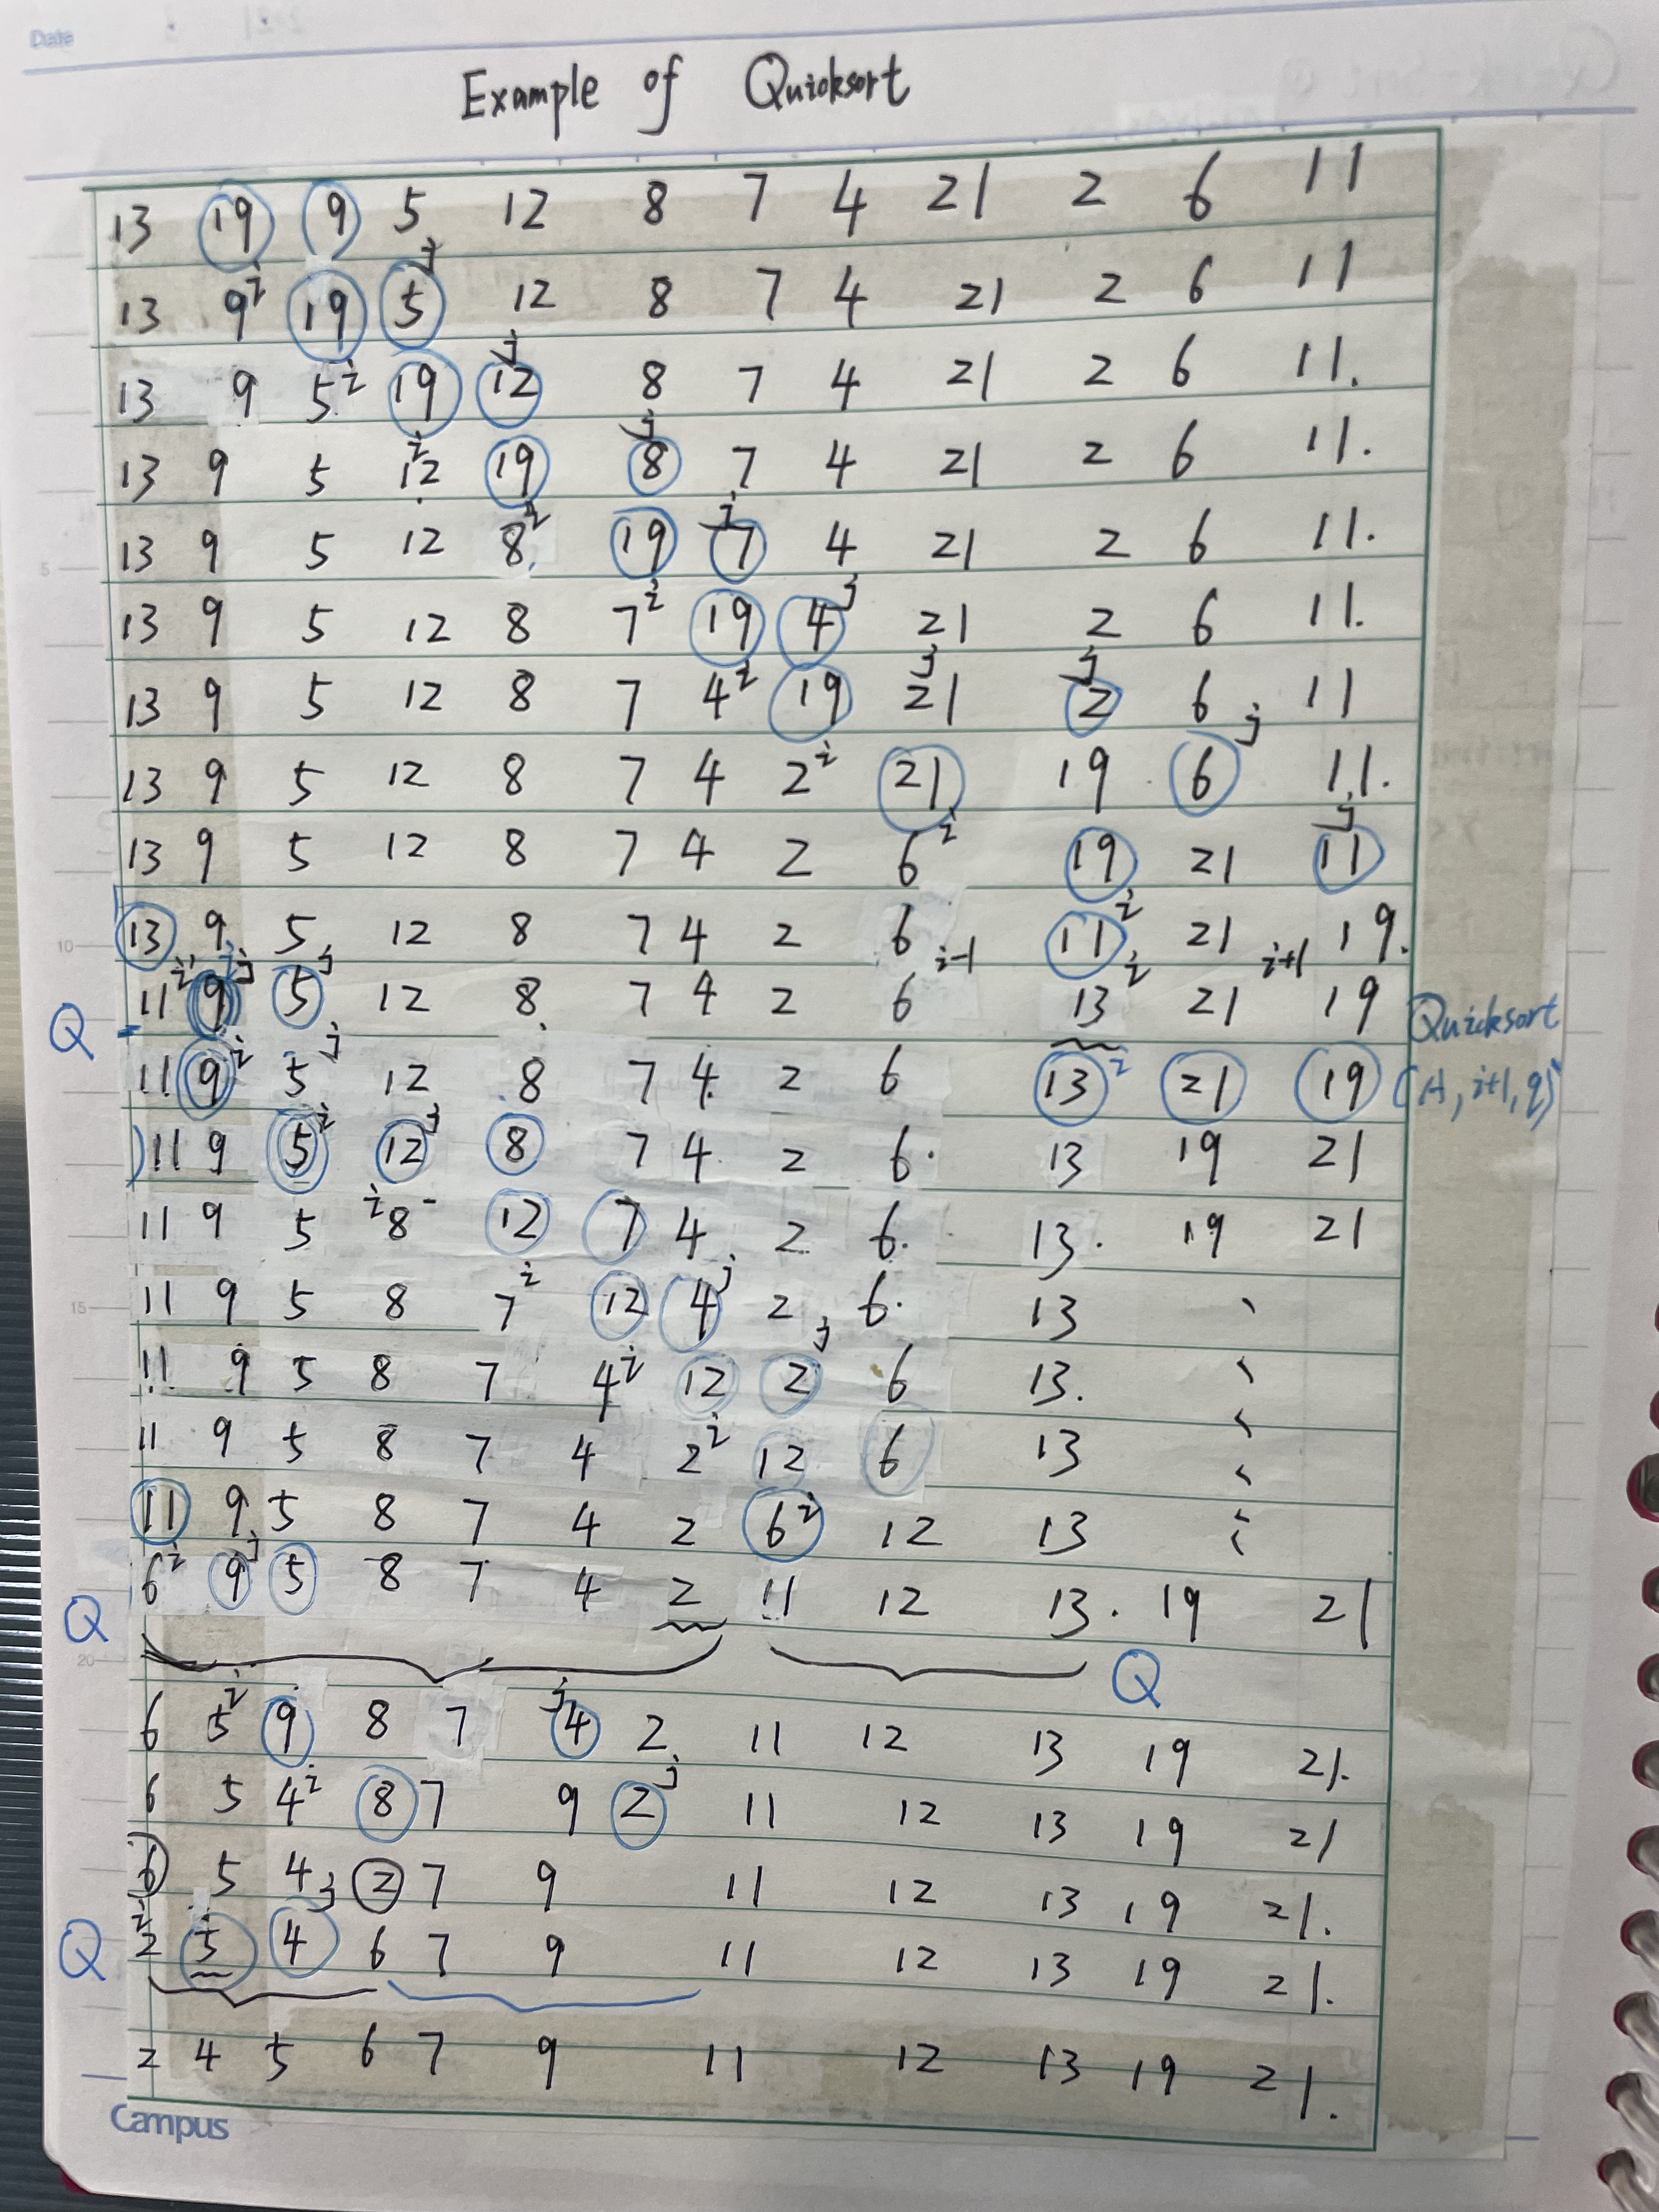 Date
Example of Quicksort
13 19 9 5 12 8 7 4 21 2 6 11
j
13 9 i 19 5 12 8 7 4 21 2 6 11
j
13 9 5 i 19 12 8 7 4 21 2 6 11.
i j
13 9 5 12 19 8 7 4 21 2 6 11.
j
13 9 5 12 8 i 19 7 4 21 2 6 11.
13 9 5 12 8 7 i 19 4 j 21 2 6 11.
j j
13 9 5 12 8 7 4 i 19 21 2 6 11
j
13 9 5 12 8 7 4 2 i 21 19 6 11.
j
13 9 5 12 8 7 4 2 6 i 19 21 11
10 13 9 5 12 8 7 4 2 6 11 i 21 19.
i j j i-1 i i+1
11 9 5 12 8 7 4 2 6 13 21 19
Q Quicksort
11 9 i 5 j 12 8 7 4 2 6 13 i 21 19 (A, i+1, q)
11 9 5 i 12 j 8 7 4 2 6. 13 19 21
11 9 5 i 8 12 7 4 2 6. 13. 19 21
15 11 9 5 8 7 i 12 4 j 2 6. 13
j
11 9 5 8 7 4 i 12 2 6 13.
11 9 5 8 7 4 2 i 12 6 13
11 9 5 8 7 4 2 6 i 12 13
6 i 9 j 5 8 7 4 2 11 12 13. 19 21
Q
20 Q
6 5 i 9 8 7 j 4 2 11 12 13 19 21.
6 5 4 i 8 7 9 2 j 11 12 13 19 21
6 5 4 2 7 9 11 12 13 19 21.
i j
Q 2 5 4 6 7 9 11 12 13 19 21.
2 4 5 6 7 9 11 12 13 19 21.
Campus